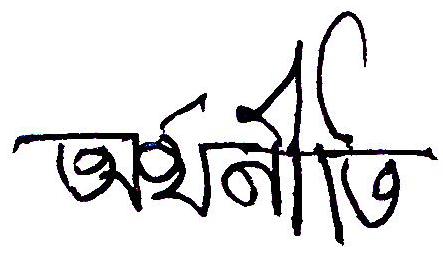 অর্থনীতি